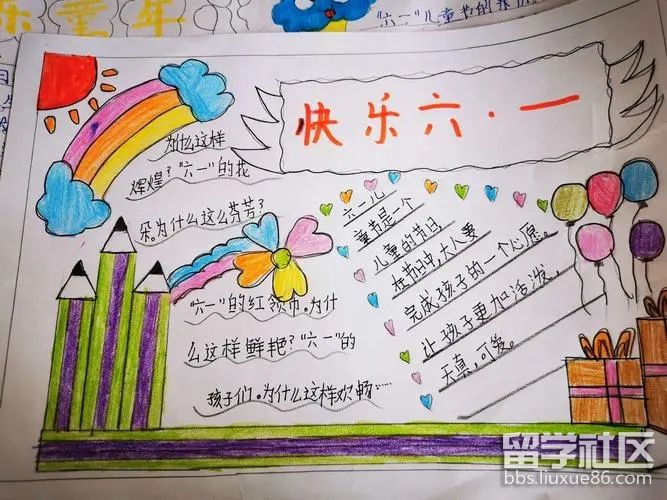 乐童年
"六一"儿童节的
快乐六·一
为什么这样
辉煌?"六一"的花
朵。为什么这么芬芳?
"六一"的红领巾。为什
么这样鲜艳?"六一"的
孩子们。为什么这样欢畅……
六一儿
童节是个
儿童的节日
在节日中,大人要
完成孩子的一个心愿。
让孩子更加活泼,
天真,可爱。
留学社区
bbs.liuxue86.com